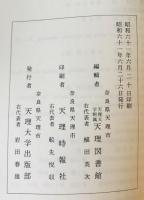 昭和六十一年六月二十日印刷
昭和六十一年六月二十六日発行
奈良県天理市
編輯者
天理図書館
右代表者 植田英次
奈良県天理市
印刷者
天理時報社
右代表者
奈良県天理市
発行者
天理大学出版部
右代表者 岩田春雄